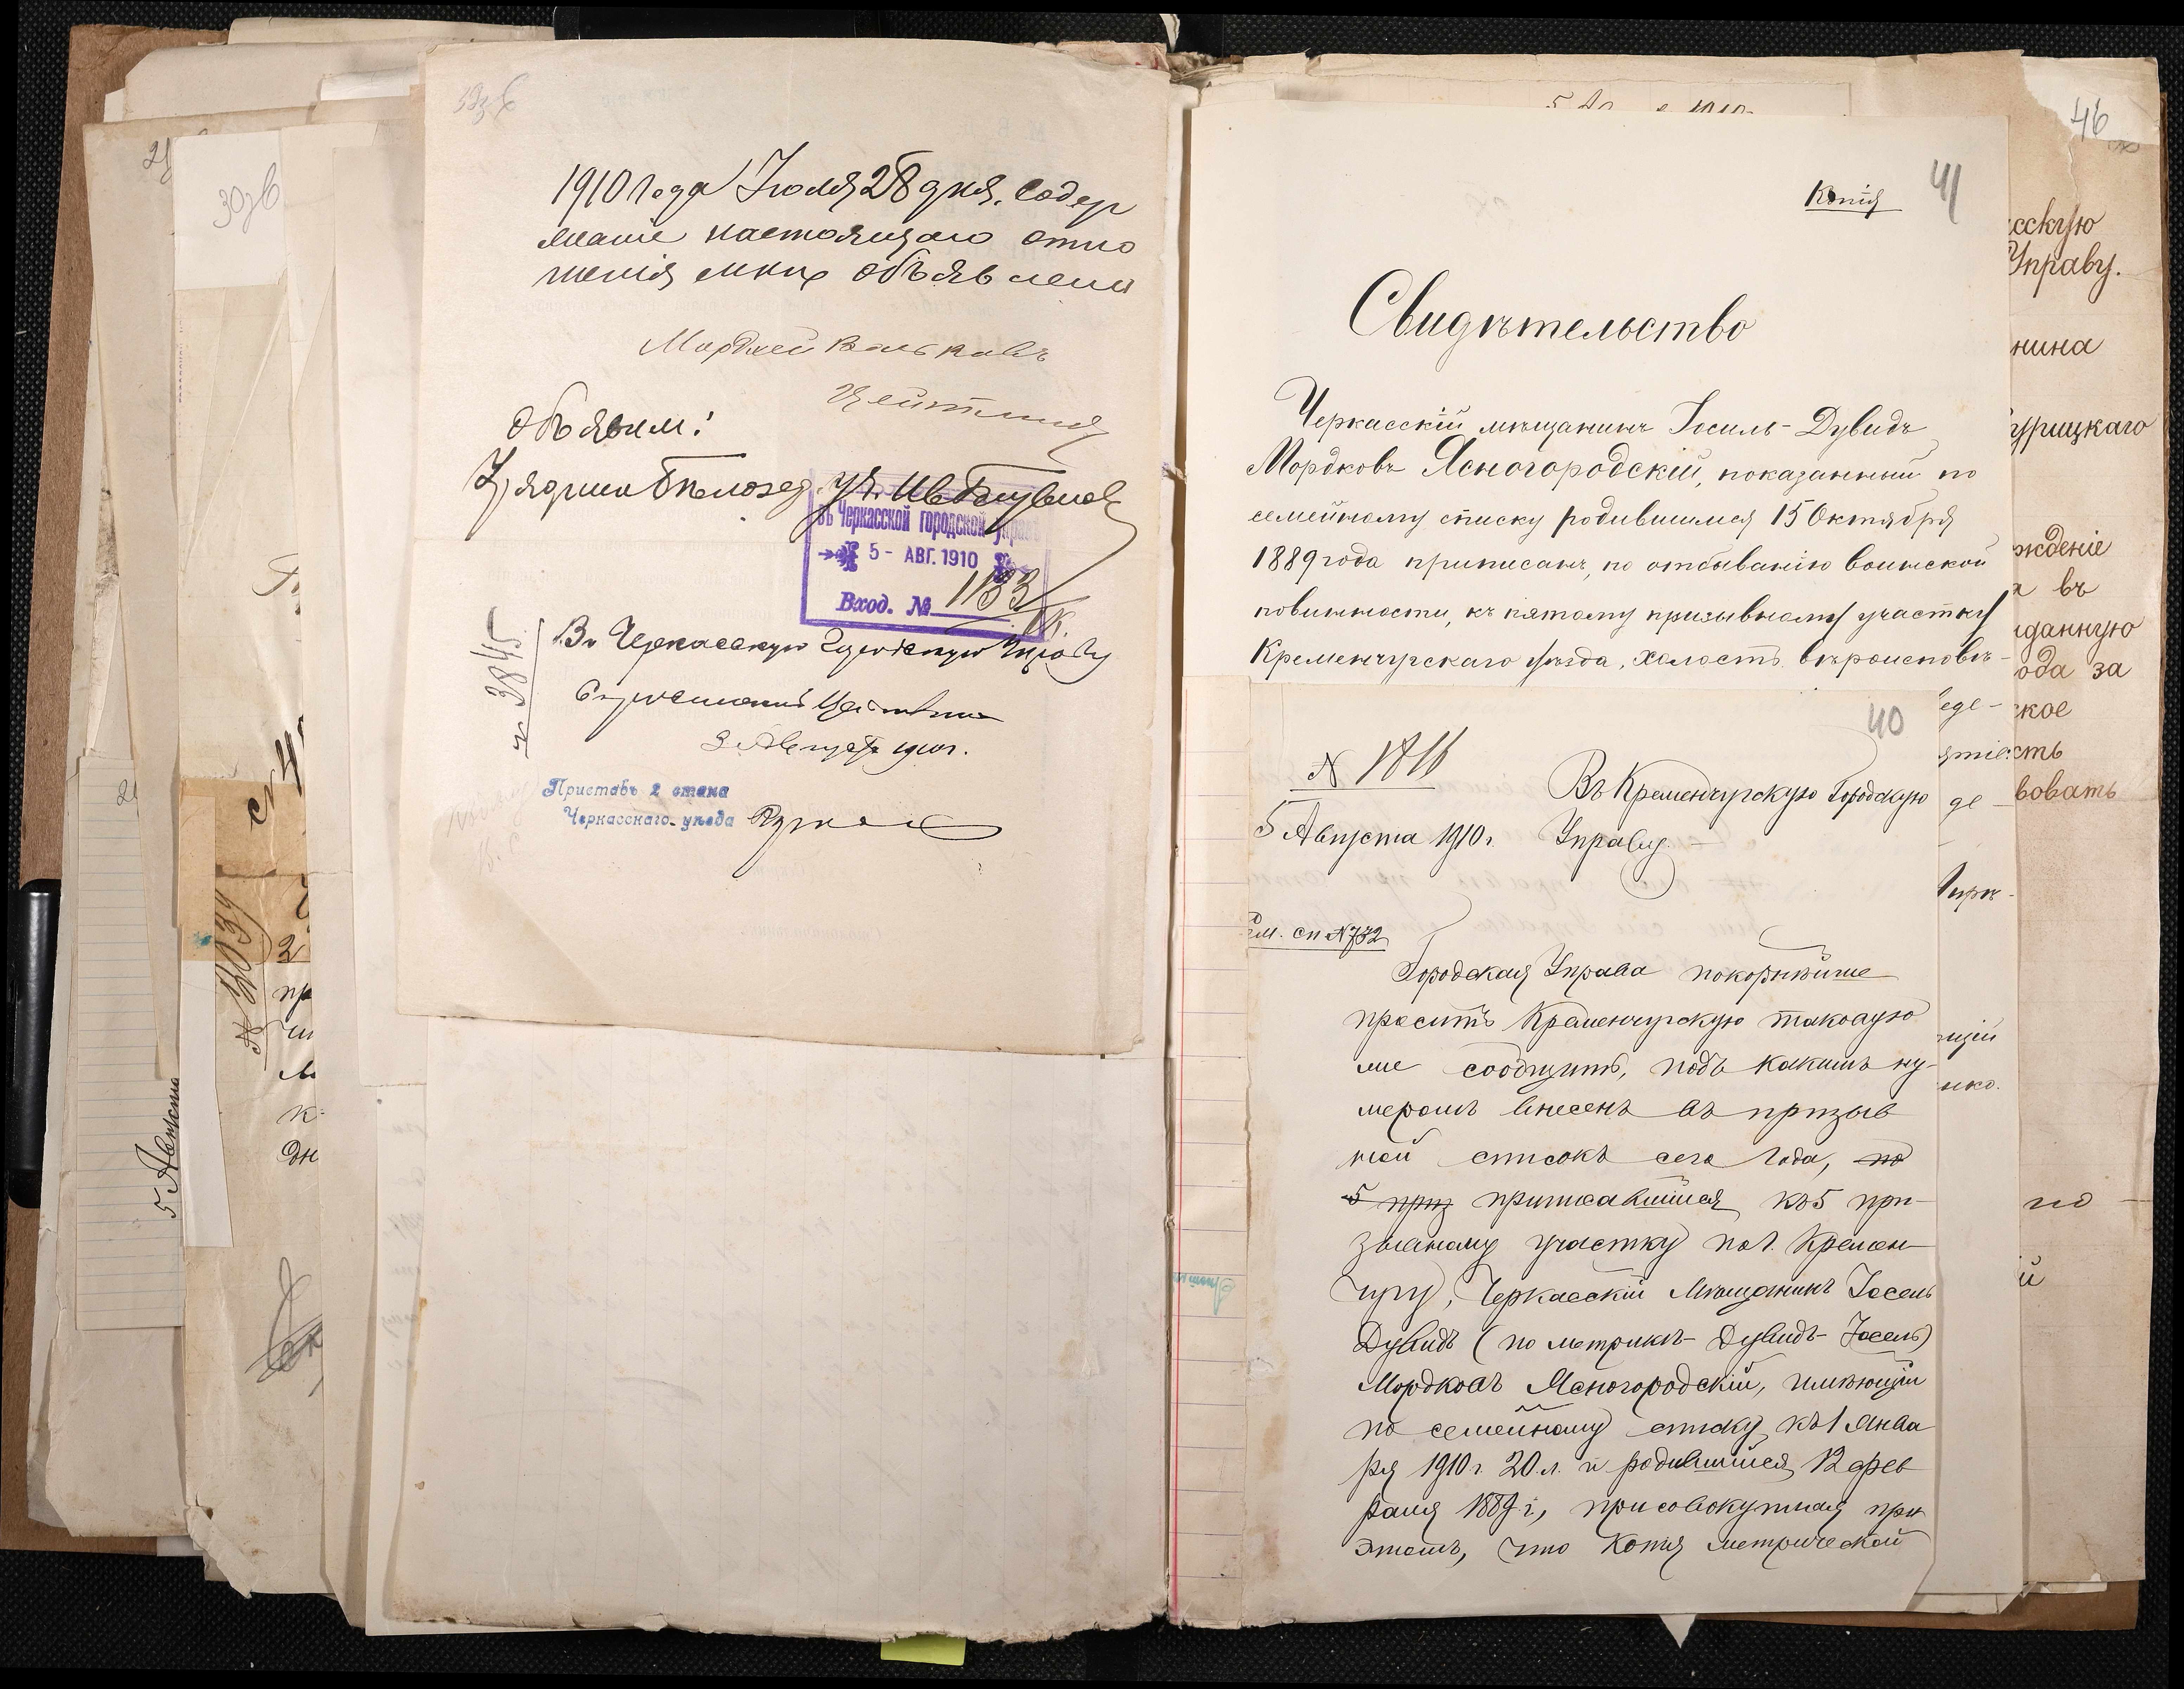 1910 года Іюля 28 дня. Содер
жаніе настоящаго отно
шенія мнѣ объявлено
Мордхей Вольковъ
Цейтлинъ
Объявилъ:
Урядникъ
въ Черкасской городской управѣ
5 - АВГ. 1910
Вход. № 1183
№ 3845
Въ Черкасскую Городскую Управу
3 Августа 1910 г.
Приставъ 2 стана
Черкасскаго уѣзда
30об
5 Августа
41
Копія
Свидѣтельство
Черкасскій мѣщанинъ Іосиль-Дувидъ
Мордковъ Ясногородскій, показанный по
семейному списку родившимся 15 Октября
1889 года приписанъ, по отбыванію воинской
повинности, къ пятому призывному участку
Кременчугскаго уѣзда, холостъ вѣроисповѣ-
40
№ 1816
5 Августа 1910 г.
Въ Кременчугскую Городскую
Управу.
сем. сп № 732
Городская Управа покорнѣйше
проситъ Кременчугскую таковую
же сообщить, подъ какимъ ну-
меромъ внесенъ въ призыв
ной списокъ сего года, по
5 приз приписавшійся къ 5 при-
зывному участку по г. Кремен-
чугу, Черкасскій Мѣщанинъ Іосель
Дувидъ (по метрикѣ - Дувидъ-Іосель)
Мордковъ Ясногородскій, имѣющій
по семейному списку къ 1 Янва
ря 1910 г. 20 л. и родившійся 12 фев
раля 1889 г., присовокупляя при
этомъ, что копія метрической
46
сскую
Управу.
нина
урицкаго
жденіе
въ
данную
ода за
ское
сть
вовать
но
й